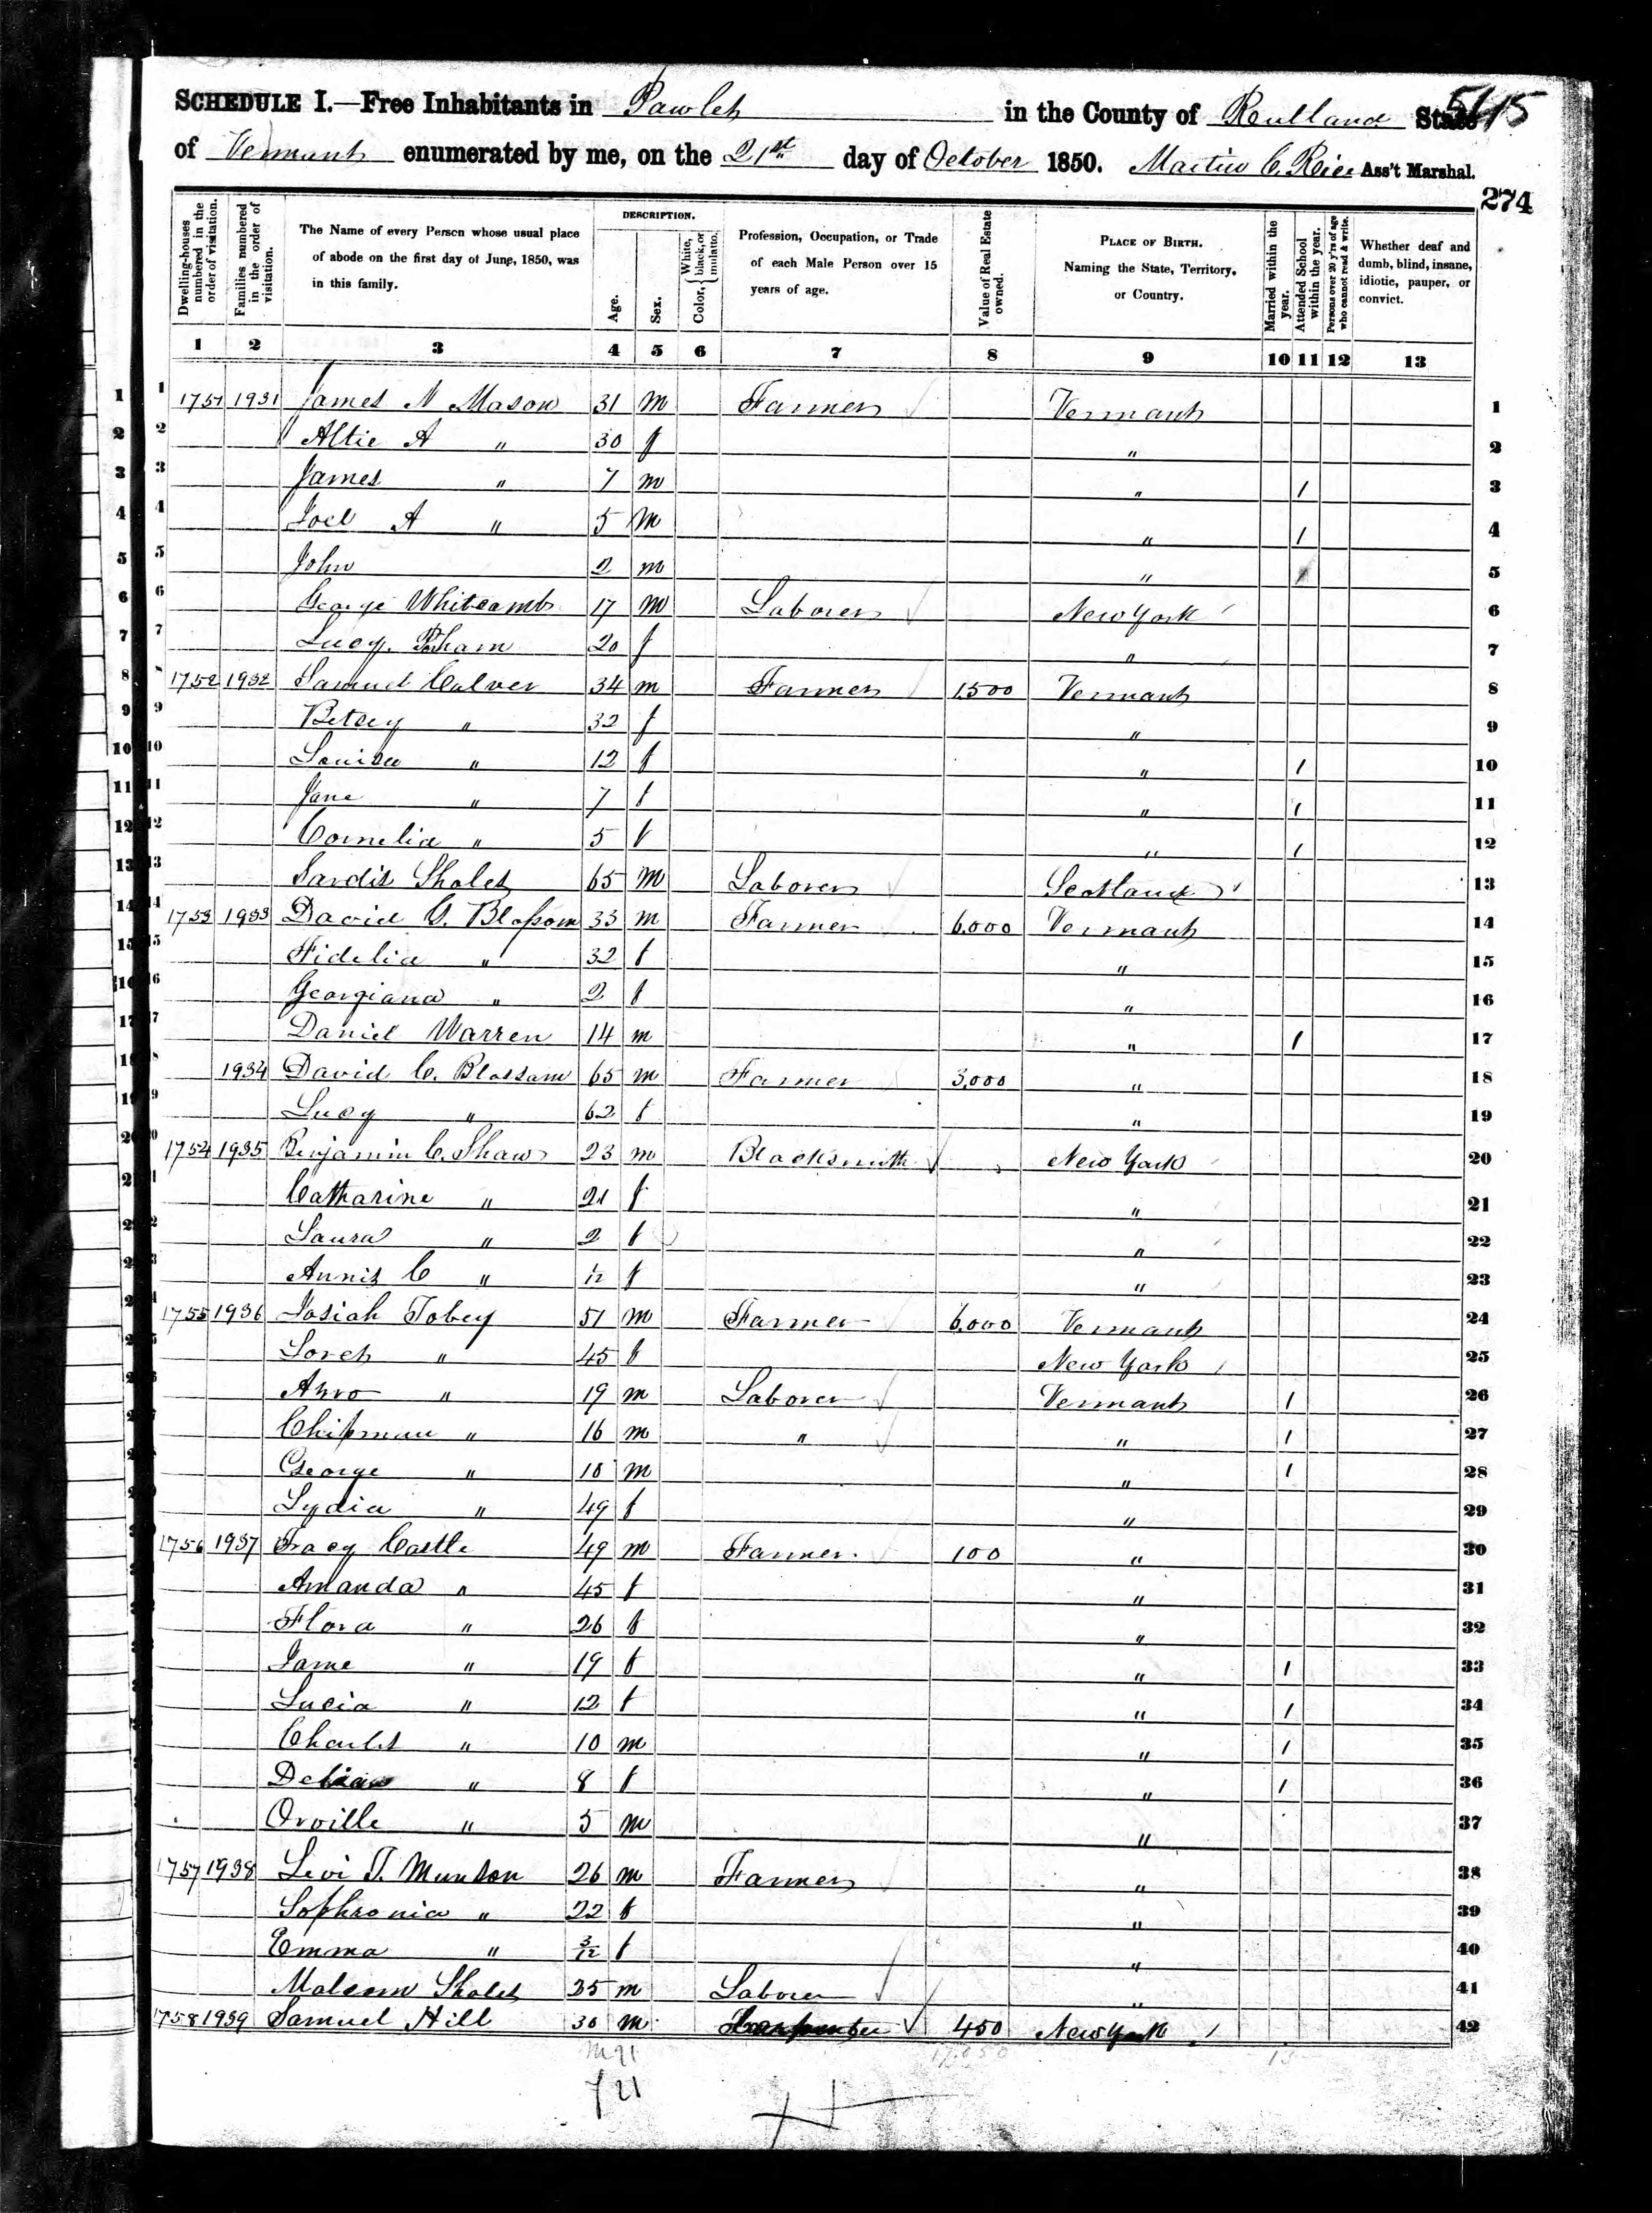 SCHEDULE I.—Free Inhabitants in Pawlet in the County of Rutland State
of Vermont enumerated by me, on the 21st day of October 1850. Martin C. Rice Ass't Marshal.
274
Dwelling-houses numbered in the order of visitation.
Families numbered in the order of visitation.
The Name of every Person whose usual place of abode on the first day of June, 1850, was in this family.
DESCRIPTION.
Age.
Sex.
Color, White, black, or mulatto.
Profession, Occupation, or Trade of each Male Person over 15 years of age.
Value of Real Estate owned.
PLACE OF BIRTH. Naming the State, Territory, or Country.
Married within the year.
Attended School within the year.
Persons over 20 y'rs of age who cannot read & write.
Whether deaf and dumb, blind, insane, idiotic, pauper, or convict.
1 2 3 4 5 6 7 8 9 10 11 12 13
1 1751 1931 James N Mason 31 m Farmer Vermont 1
2 Altie A " 30 f " 2
3 James " 7 m " 1 3
4 Joel A " 5 m " 1 4
5 John 2 m " 5
6 George Whitcomb 17 m Laborer New York 6
7 Lucy 20 f " 7
8 1752 1932 Samuel Culver 34 m Farmer 1500 Vermont 8
9 Betsey " 32 f " 9
10 Louisa " 12 f " 1 10
11 Jane " 7 f " 1 11
12 Cornelia " 5 f " 1 12
13 Sardis Sholes 65 m Laborer Scotland 13
14 1753 1933 David C. Blossom 33 m Farmer 6,000 Vermont 14
15 Fidelia " 32 f " 15
16 Georgiana " 2 f " 16
17 Daniel Warren 14 m " 1 17
1934 David C. Blossom 65 m Farmer 3,000 " 18
Lucy " 62 f " 19
1754 1935 Benjamin C. Shaw 23 m Blacksmith New York 20
Catharine " 21 f " 21
Laura " 2 f " 22
Annis C " 1/12 f " 23
1755 1936 Josiah Tobey 51 m Farmer 6,000 Vermont 24
" 45 f New York 25
" 19 m Laborer Vermont 1 26
Chipman " 16 m " " 1 27
George " 10 m " 1 28
Lydia " 49 f " 29
1756 1937 Tracy Castle 49 m Farmer 100 " 30
Amanda " 45 f " 31
Flora " 26 f " 32
Jame " 19 f " 1 33
Lucia " 12 f " 1 34
Charles " 10 m " 1 35
" 8 f " 1 36
Orville " 5 m " 37
1757 1938 Levi T. Munson 26 m Farmer " 38
Sophronia " 22 f " 39
Emma " 3/12 f " 40
Malcom Sholes 35 m Laborer " 41
1758 1939 Samuel Hill 30 m Carpenter 450 New York 42
m 21
f 21